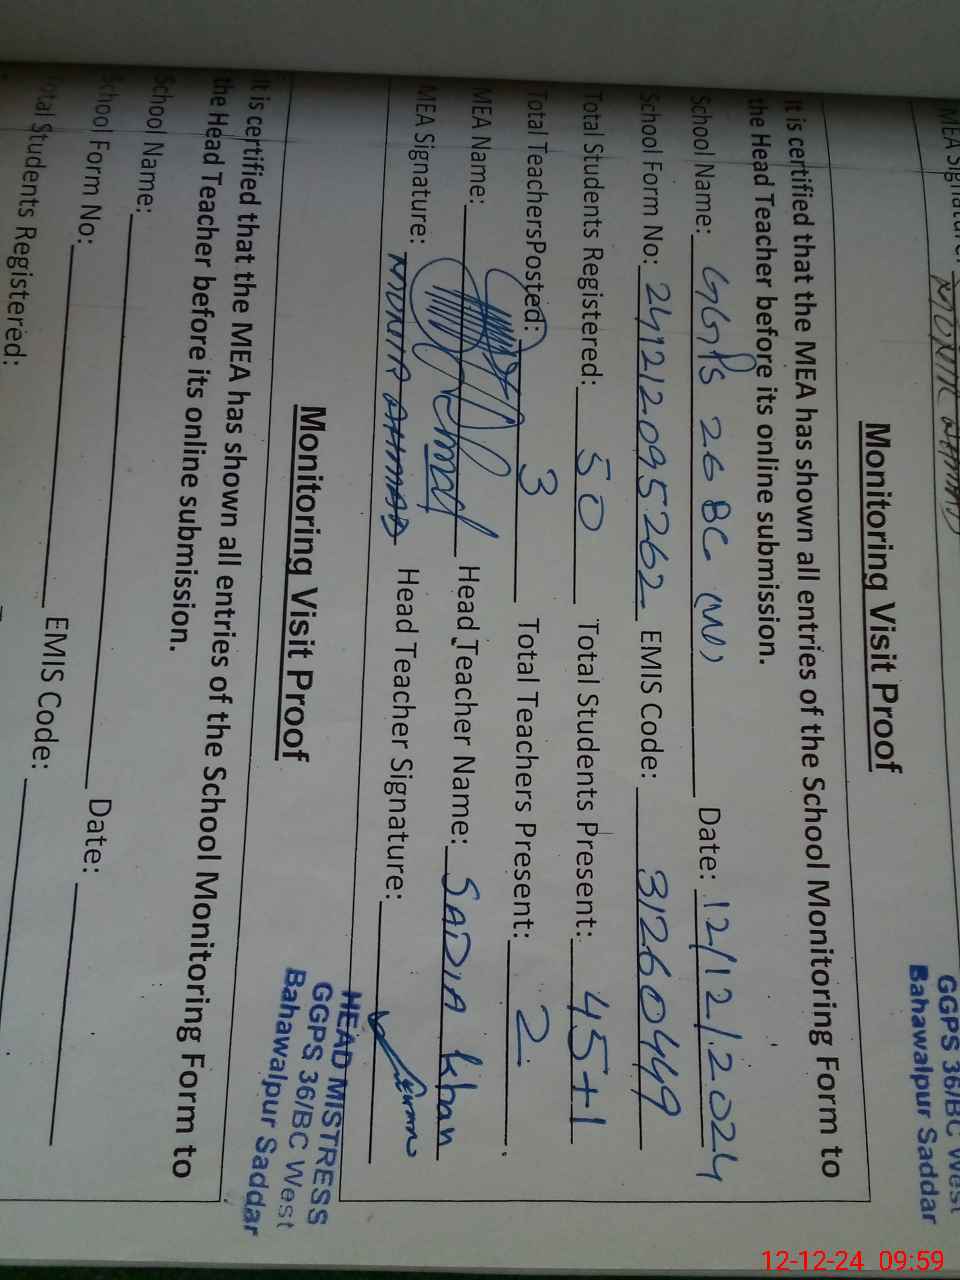 MEA Signature: MUNIR AHMAD
GGPS 36/BC West
Bahawalpur Saddar
Monitoring Visit Proof
It is certified that the MEA has shown all entries of the School Monitoring Form to
the Head Teacher before its online submission.
School Name: GGPS 36 BC (W) Date: 12/12/2024
School Form No: 241212095262 EMIS Code: 31260449
Total Students Registered: 50 Total Students Present: 45+1
Total TeachersPosted: 3 Total Teachers Present: 2
MEA Name: Head Teacher Name: SADIA khan
MEA Signature: MUNIR AHMAD Head Teacher Signature:
HEAD MISTRESS
GGPS 36/BC West
Bahawalpur Saddar
Monitoring Visit Proof
It is certified that the MEA has shown all entries of the School Monitoring Form to
the Head Teacher before its online submission.
School Name: Date:
School Form No: EMIS Code:
Total Students Registered:
12-12-24 09:59